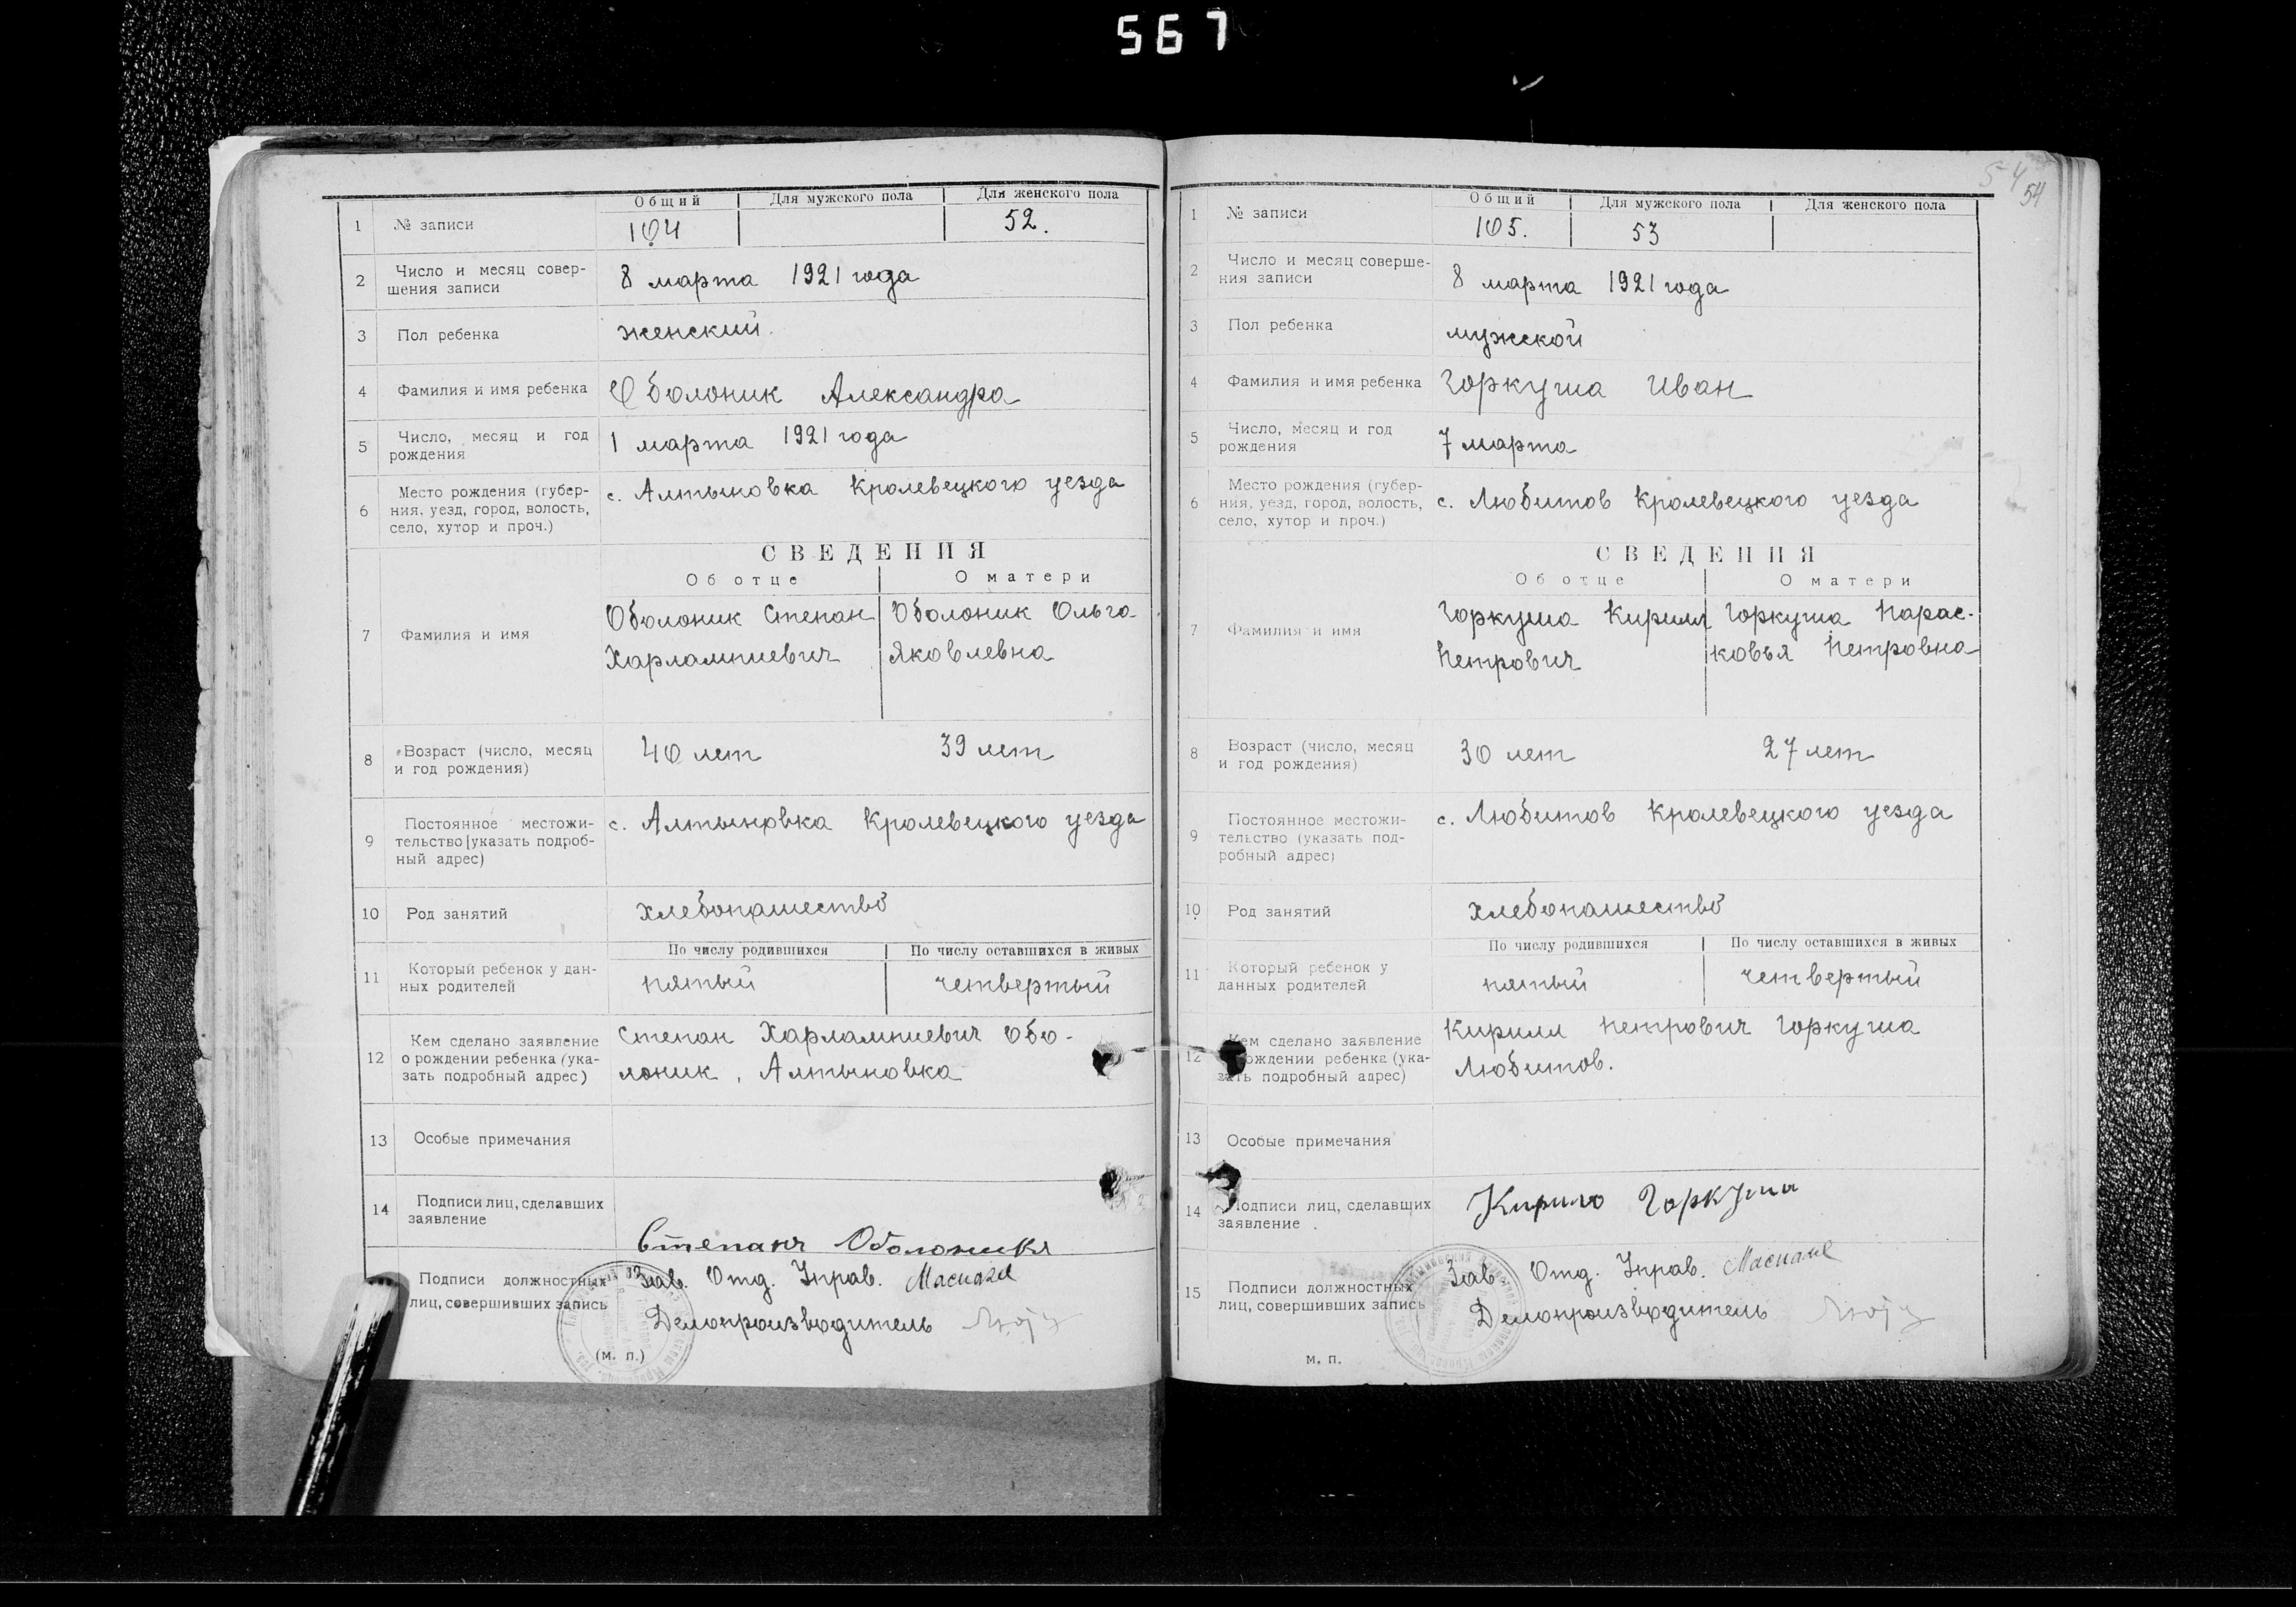 567
Общий Для мужского пола Для женского пола
1 № записи 104 52.
2 Число и месяц совер-
шения записи 8 марта 1921 года
3 Пол ребенка женский.
4 Фамилия и имя ребенка Оболоник Александра
5 Число, месяц и год
рождения 1 марта 1921 года
6 Место рождения (губер-
ния, уезд, город, волость,
село, хутор и проч.) с. Алтыновка Кролевецкого уезда
СВЕДЕНИЯ
Об отце О матери
7 Фамилия и имя
Оболоник Степан Оболоник Ольга
Харлампиевич Яковлевна
8 Возраст (число, месяц
и год рождения) 40 лет 39 лет
9 Постоянное местожи-
тельство (указать подроб-
ный адрес) с. Алтыновка Кролевецкого уезда
10 Род занятий хлебопашество
По числу родившихся По числу оставшихся в живых
11 Который ребенок у дан-
ных родителей пятый четвертый
12 Кем сделано заявление
о рождении ребенка (ука-
зать подробный адрес)
Степан Харлампиевич Обо-
лоник, Алтыновка
13 Особые примечания
14 Подписи лиц, сделавших
заявление
Степанъ Оболоника
Подписи должностных
лиц, совершивших запись
Зав. Отд. Управ.
Делопроизводитель
(м. п.)
54
54
Общий Для мужского пола Для женского пола
1 № записи 105. 53
2 Число и месяц соверше-
ния записи 8 марта 1921 года
3 Пол ребенка мужской
4 Фамилия и имя ребенка Горкуша Иван
5 Число, месяц и год
рождения 7 марта
6 Место рождения (губер-
ния, уезд, город, волость,
село, хутор и проч.) с. Любитов Кролевецкого уезда
СВЕДЕНИЯ
Об отце О матери
7 Фамилия и имя
Горкуша Кирилл Горкуша Парас-
Петрович ковья Петровна
8 Возраст (число, месяц
и год рождения) 30 лет 27 лет
9 Постоянное местожи-
тельство (указать под-
робный адрес) с. Любитов Кролевецкого уезда
10 Род занятий хлебопашество
По числу родившихся По числу оставшихся в живых
11 Который ребенок у
данных родителей пятый четвертый
12 Кем сделано заявление
о рождении ребенка (ука-
зать подробный адрес)
Кирилл Петрович Горкуша
Любитов.
13 Особые примечания
14 Подписи лиц, сделавших
заявление
Кирило Горкуша
15 Подписи должностных
лиц, совершивших запись
Зав. Отд. Управ.
Делопроизводитель
м. п.